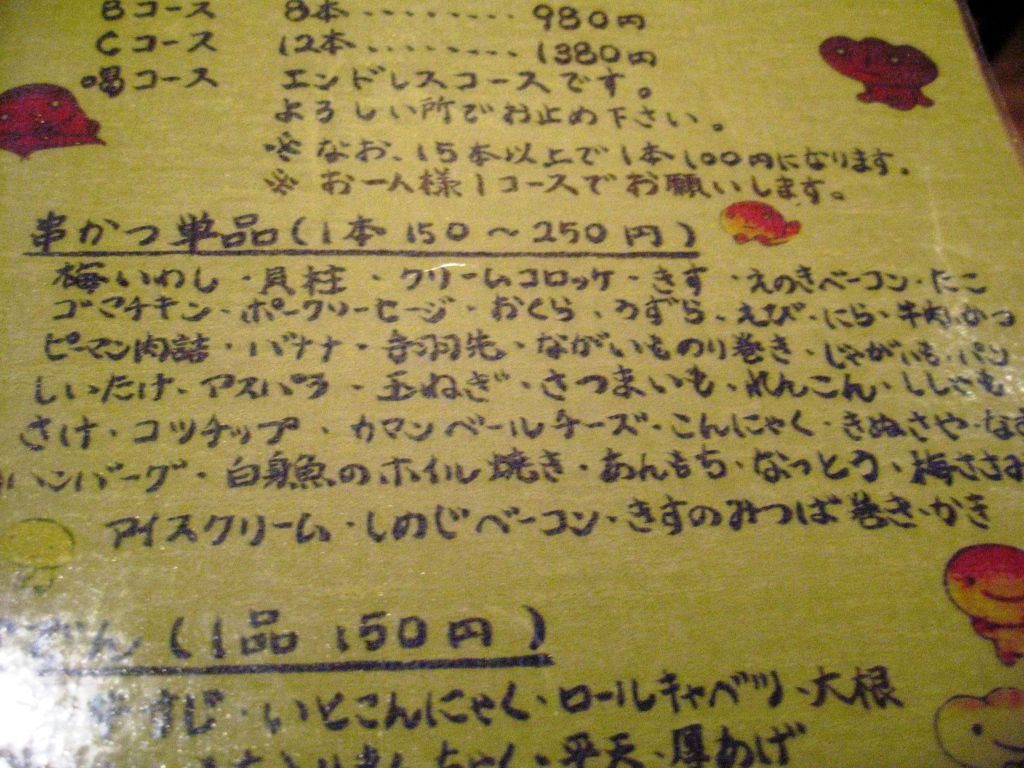 Bコース 8本‥‥‥‥ 980円
Cコース 12本‥‥‥‥ 1380円
喝コース エンドレスコースです。
よろしい所でお止め下さい。
※なお、15本以上で1本100円になります。
※お一人様1コースでお願いします。
串かつ単品(1本150〜250円)
梅いわし・貝柱・クリームコロッケ・きす・えのきベーコン・たこ
ゴマチキン・ポークソーセージ・おくら・うずら・えび・にら・牛肉かつ
ピーマン肉詰・バナナ・手羽先・ながいものり巻き・じゃがいも・パン
しいたけ・アスパラ・玉ねぎ・さつまいも・れんこん・ししゃも
さけ・コツチップ・カマンベールチーズ・こんにゃく・きぬさや・なす
ハンバーグ・白身魚のホイル焼き・あんもち・なっとう・梅ささみ
アイスクリーム・しめじベーコン・きすのみつば巻き・かき
おでん(1品150円)
すじ・いとこんにゃく・ロールキャベツ・大根
平天・厚あげ